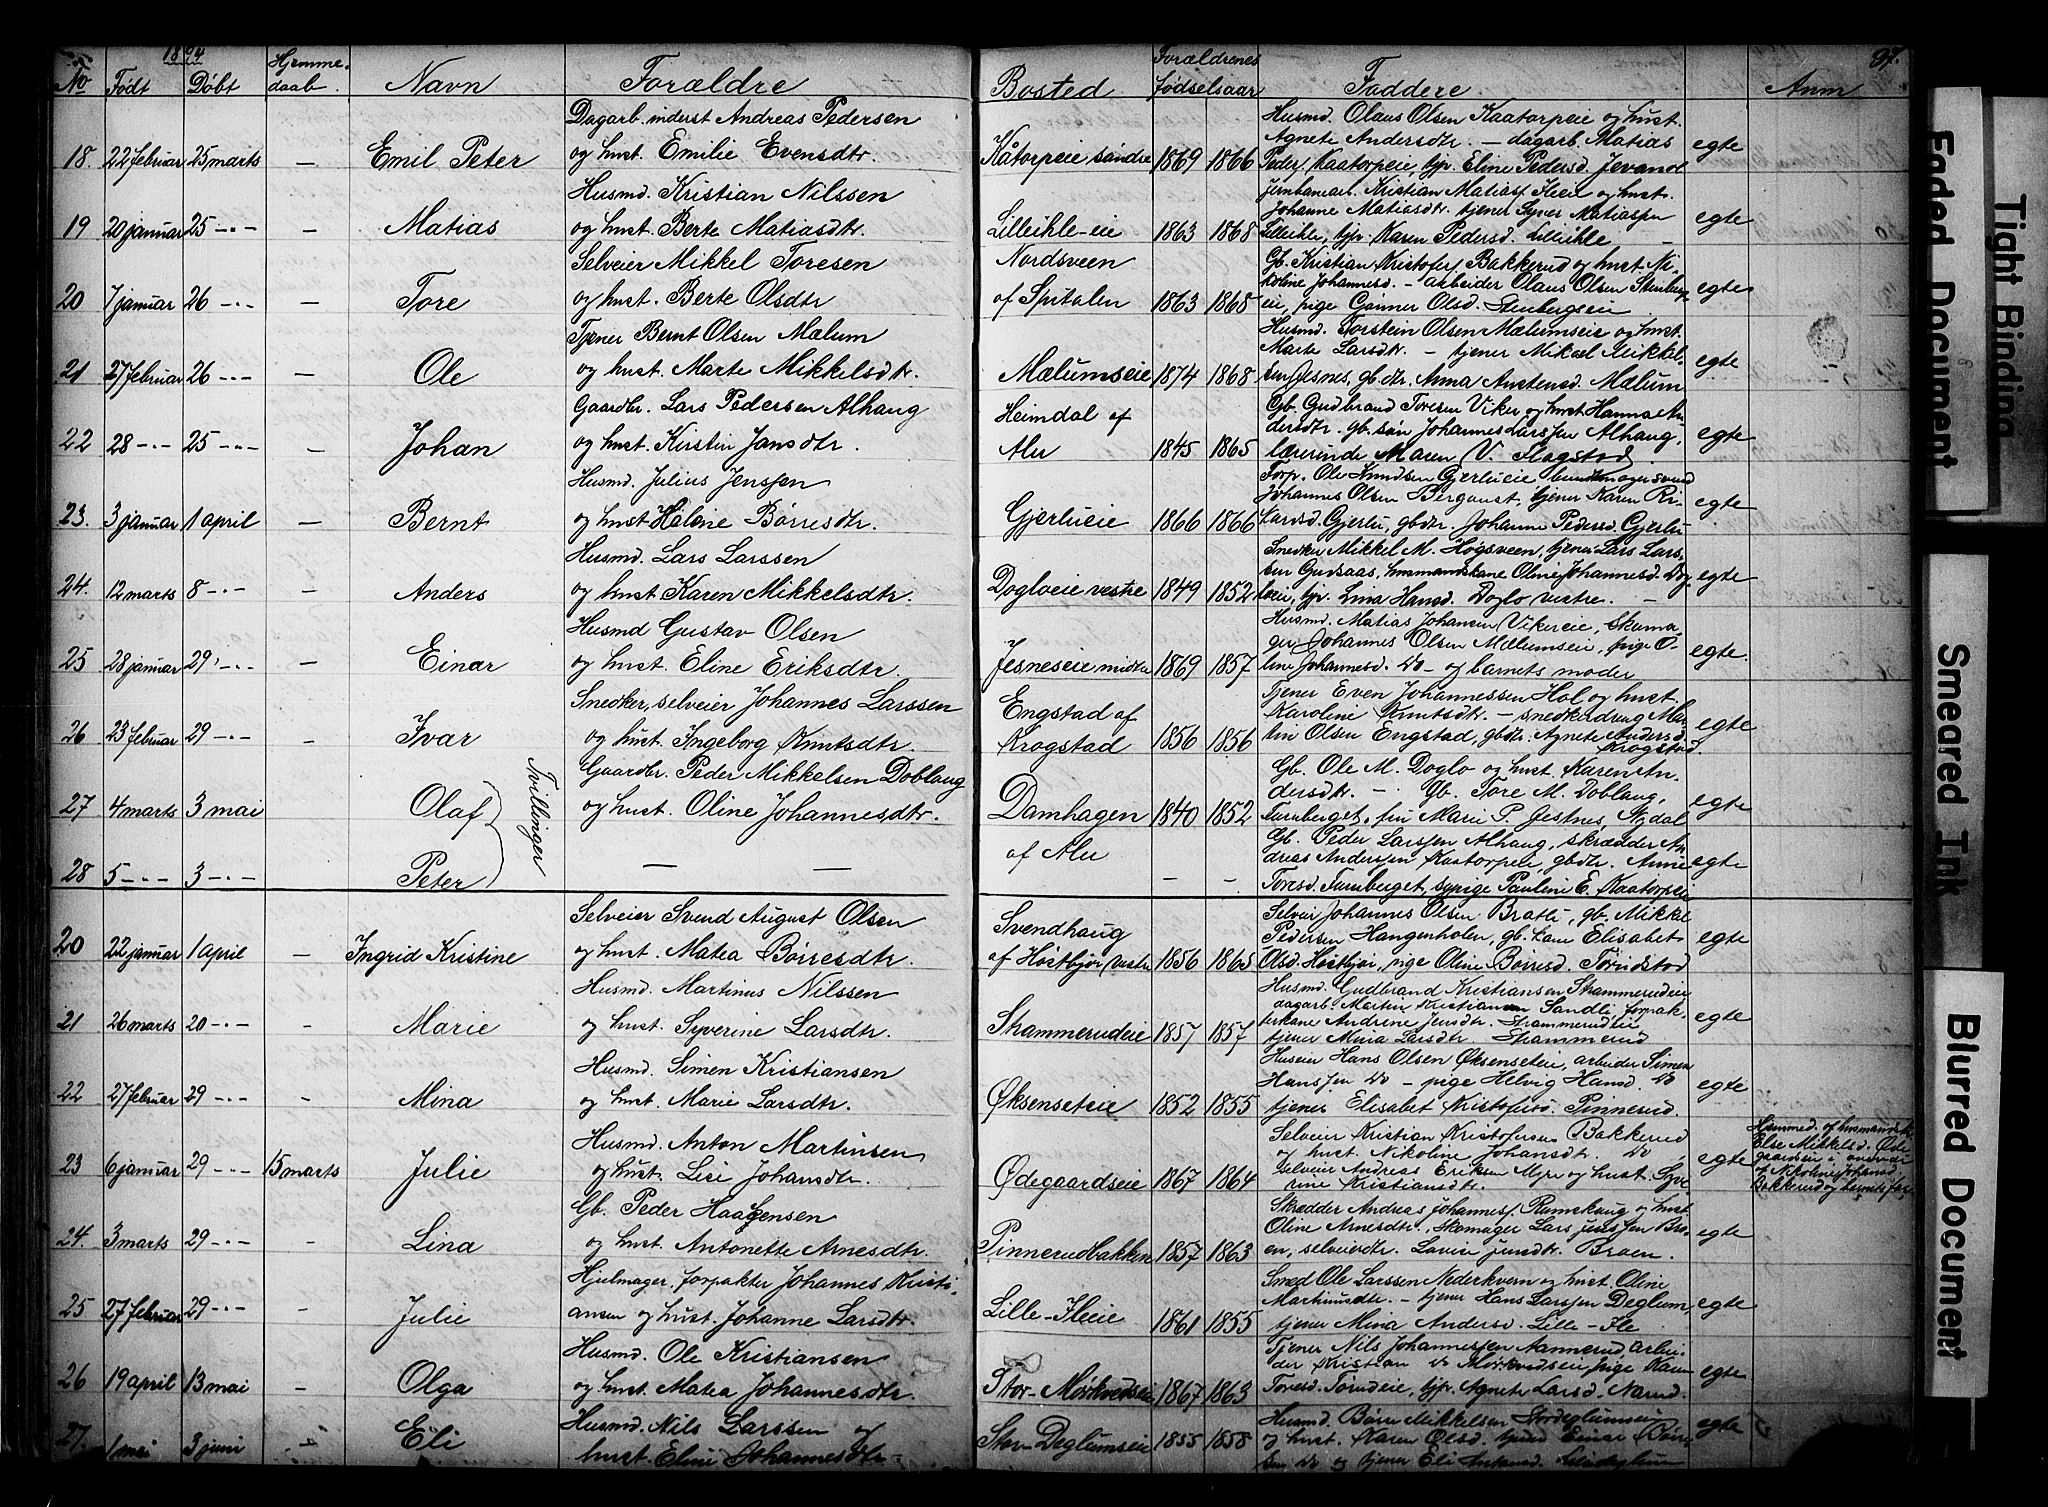 1894
97.
No Født Døbt Hjemmedaab. Navn Forældre Bosted Forældrenes fødselsaar Faddere Anm
Dagarb. inderst Andreas Pedersen
18. 22 februar 25 marts – Emil Peter og hust. Emilie Evensdtr. Kåtorpeie søndre 1869 1866 egte
Husmd. Olaus Olsen Kaatorpeie og hust.
Agnete Andersdtr. – dagarb. Matias
Peders. Kaatorpeie, tjp. Eline Pedersd.
Husmd. Kristian Nilssen
19 20 januar 25 -"- – Matias og hust. Berte Matiasdtr. Lilleihle-eie 1863 1868 egte
Jernbanearb. Kristian Matias og hust.
Johanne Matiasdtr. tjener Syver Matiassen
Lilleihle, tjp. Karen Pedersd. Lilleihle –
Selveier Mikkel Toresen
20 7 januar 26 -"- – Tore og hust. Berte Olsdtr Nordsveen af Spitalen 1863 1868 egte
Gb. Kristian Kristofers. Bakkerud og hust. Ni-
koline Johannesd. – arbeider Olaus Olsen Stenbergs-
eie, pige Gunner Olsd. Stenbergseie
Tjener Bernt Olsen Mælum
21 27 februar 26 -"- – Ole og hust. Marte Mikkelsdtr. Mælumseie 1874 1868 egte
Husmd. Torstein Olsen Mælumseie og hust.
Marte Larsdtr. – tjener Mikael Mikkel-
sen Jesnes, gb.dtr. Anna Austensd. Mælum
Gaardbr. Lars Pedersen Alhaug
22 28 -"- 25 -"- – Johan og hust. Kirstin Jansdtr. Heimdal af Alu 1845 1865 egte
Gb. Gudbrand Toresen Viker og hust. Hanna An-
dersdtr. gb. søn Johannes Larssen Alhaug,
lærerinde Maren V. Flagstad
Husmd. Julius Jenssen
23. 3 januar 1 april – Bernt og hust. Helene Børresdtr. Gjerlueie 1866 1866 egte
Forp. Ole Knudsen Gjerlueie,
Johannes Olsen Bergaust, tjener Karen Ri-
kardsd. Gjerlu, gbdtr. Johanne Pedersd. Gjerlu
Husmd. Lars Larssen
24. 12 marts 8 -"- – Anders og hust. Karen Mikkelsdtr. Dogloeie vestre 1849 1852 egte
Snedker Mikkel M. Høgsveen, tjener Lars Lars-
sen Gudsaas, husmandskone Oline Johannesd. Dog-
loeie, tjp. Lina Hansd. Doglo vestre. –
Husmd Gustav Olsen
25 28 januar 29 -"- – Einar og hust. Eline Eriksdtr. Jesneseie midtre 1869 1857 egte.
Husmd. Matias Johansen Vikereie, Skoma-
ger Johannes Olsen Mælumseie, pige O-
line Johannesd. Do – og barnets moder
Snedker, selveier Johannes Larssen
26 23 februar 29 -"- – Ivar og hust. Ingeborg Knutsdtr. Engstad af Krogstad 1856 1856 egte
Tjener Even Johannessen Hol og hust.
Karoline Knutsdtr. – snedkerdreng Mar-
tin Olsen Engstad, gbdtr. Agnete Andersd.
Krogstad
Gaardbr. Peder Mikkelsen Doblaug
27 4 marts 3 mai Olaf Tvillinger og hust. Oline Johannesdtr. Damhagen af Alu 1840 1852 egte
Gb. Ole M. Doglo og hust. Karen An-
dersdtr. – Gb. Tore M. Doblaug,
Furuberget, fru Marie P. Jestnes, Nydal
28 5 -"- 3 -"- Peter – – – – egte
Gb. Peder Larssen Alhaug, skrædder An-
dreas Anderssen Kaatorpeie, gbdtr. Anne
Toresd. Furuberget, sypige Pauline E. Kaatorpeie
Selveier Svend August Olsen
20 22 januar 1 april – Ingrid Kristine og hust. Matea Børresdtr. Svendhaug af Høstbjør vestre 1856 1865 egte
Selveier Johannes Olsen Bratli, gb. Mikkel
Pedersen Hangerholen, gb. kone Elisabet
Olsd. Høstbjør, pige Oline Børresd. Torudstad
Husmd. Martinus Nilssen
21 26 marts 20 -"- – Marie og hust. Syverine Larsdtr. Skammerudeie 1857 1857 egte
Husmd. Gudbrand Kristiansen Skammerudeie
dagarb. Martin Kristiansen Sandli, forpak-
terkone Andrine Jensdtr. Skammerudeie
tjener Mina Larsdtr. Skammerud
Husmd. Simen Kristiansen
22 27 februar 29 -"- – Mina og hust. Marie Larsdtr. Øksenseteie 1852 1855 egte
Huseier Hans Olsen Øksenseteie, arbeider Simen
Hanssen Do – pige Helvig Hansd. Do
tjener Elisabet Kristofersd. Pinnerud.
Husmd. Anton Martinsen
23 6 januar 29 -"- 15 marts Julie og hust. Lise Johansdtr. Ødegaardseie 1867 1864 egte
Selveier Kristian Kristofersen Bakkerud
og hust. Nikoline Johansdtr. Do
Selveier Andreas Eriksen Myre og hust. Syve-
rine Kristiansdtr.
Hjemmed. af husmandsk.
Else Mikkelsd. Øde-
gaardseie i
af Nikoline Johansd.
Bakkerud og barnets far
Gb. Peder Haagensen
24. 3 marts 29 -"- – Lina og hust. Antonette Arnesdtr. Pinnerudbakken 1857 1863 egte
Skrædder Andreas Johannes. Rumskaug og hust
Oline Arnesdtr. Skomager Lars Jenssen Bro-
en, selveierdtr. Lovise Jensdtr. Broen.
Hjulmager, forpakter Johannes Kristi-
25 27 februar 29 -"- – Julie ansen og hust. Johanne Larsdtr. Lille-Fleie 1861 1855 egte
Smed Ole Larssen Nederkvern og hust. Oline
Martinusdtr. – tjener Hans Larssen Deglum,
tjener Mina Andersd. Lille-Fle
Husmd. Ole Kristiansen
26 19 april 13 mai – Olga og hust. Matea Johannesdtr. Stor-Mørkvedseie 1867 1863 egte
Tjener Nils Johannessen Aannerud, arbei-
der Kristian Do Mørkvedseie, pige Karen
Toresd. Torudeie, tjp. Agnete Larsd. Narud.
Husmd. Nils Larssen og
27. 1 mai 3 juni – Eli hust. Eline Johannesdtr. Stor-Deglumseie 1855 1858 egte
Husmd. Børre Mikkelsen Stordeglumseie
og hust. Karen Olsd. Einar Børre-
sen Do og tjener Eli
Faded Document
Tight Binding
Smeared Ink
Blurred Document